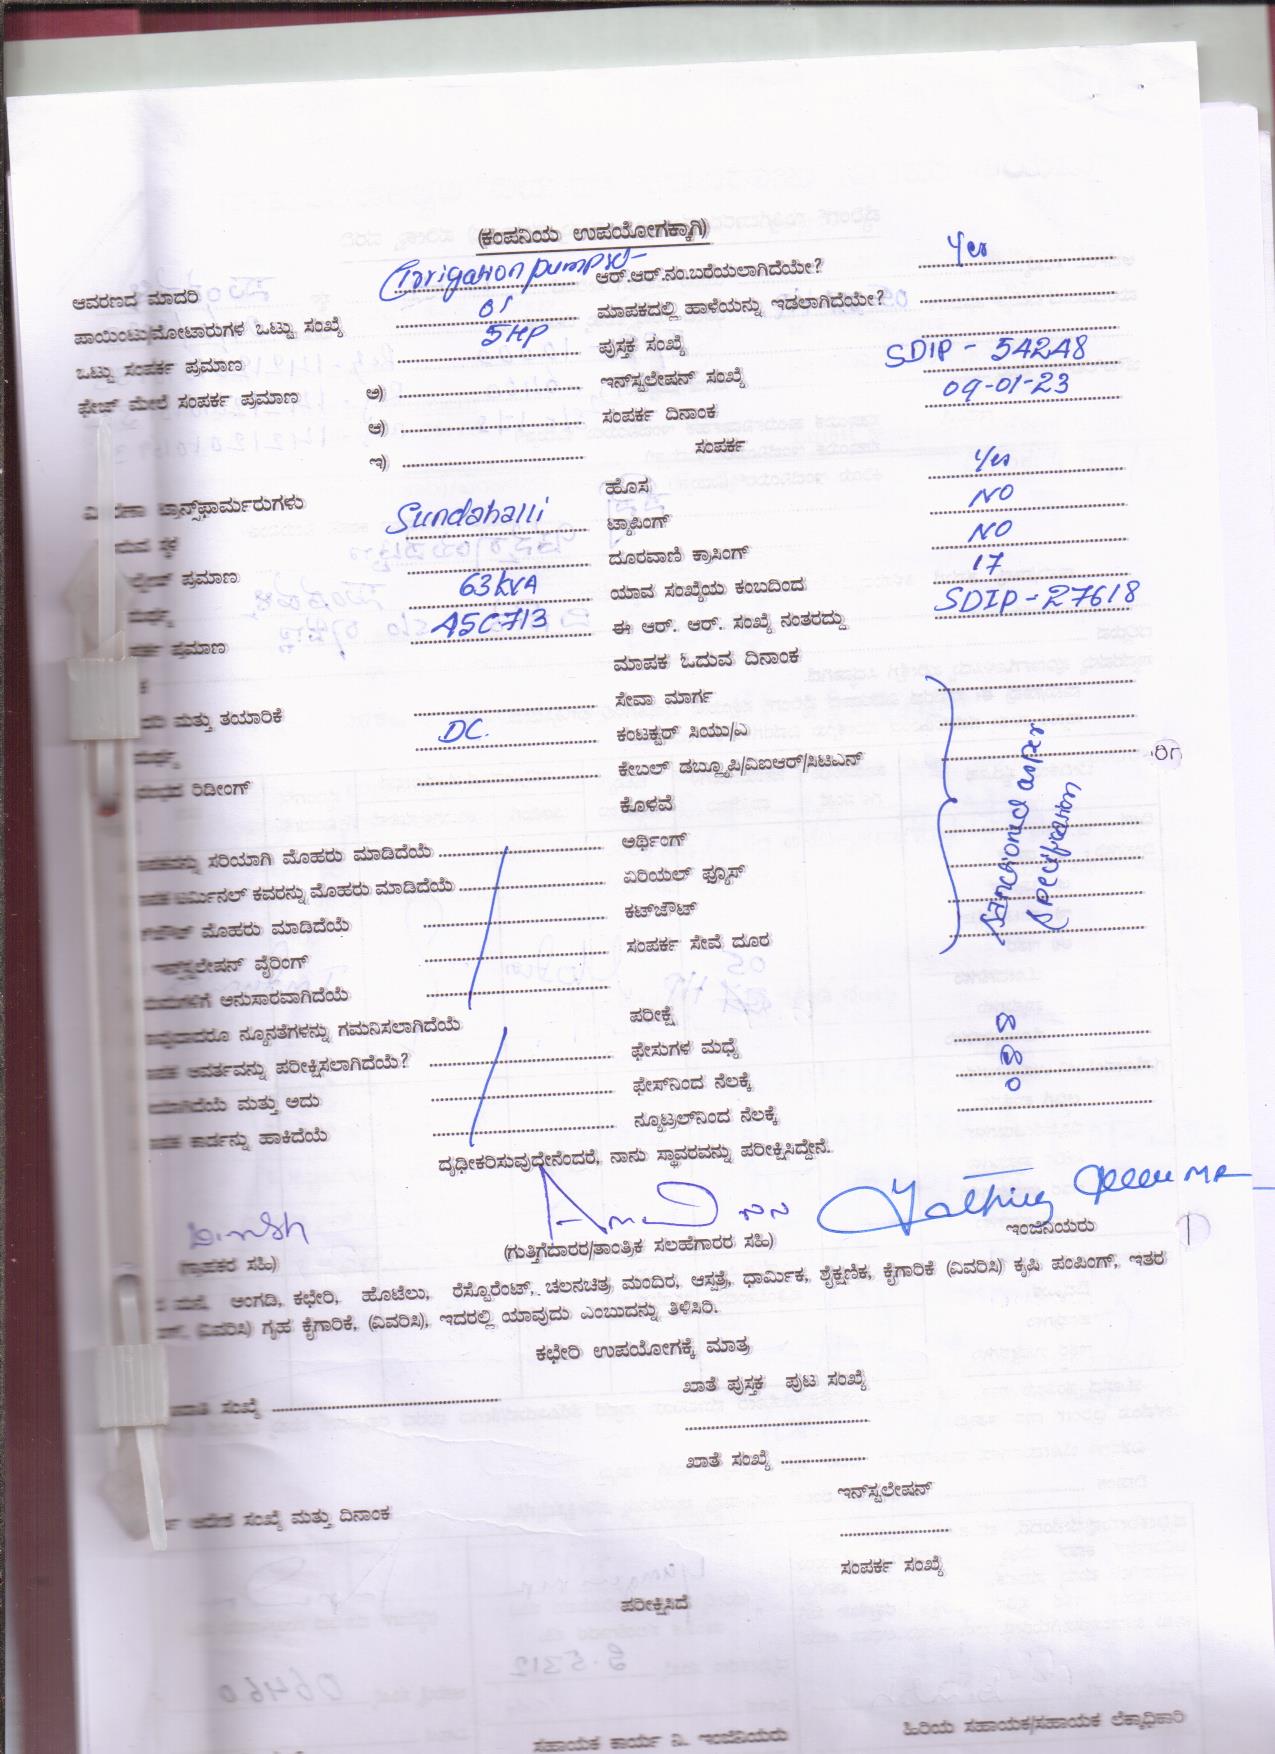 (ಕಂಪನಿಯ ಉಪಯೋಗಕ್ಕಾಗಿ)
ಆವರಣದ ಮಾದರಿ Irrigation pumpset ಆರ್.ಆರ್.ನಂ.ಬರೆಯಲಾಗಿದೆಯೇ? Yes
ಪಾಯಿಂಟು/ಮೋಟಾರುಗಳ ಒಟ್ಟು ಸಂಖ್ಯೆ 01 ಮಾಪಕದಲ್ಲಿ ಹಾಳೆಯನ್ನು ಇಡಲಾಗಿದೆಯೇ?
ಒಟ್ಟು ಸಂಪರ್ಕ ಪ್ರಮಾಣ 5HP ಪುಸ್ತಕ ಸಂಖ್ಯೆ
ಫೇಜ್ ಮೇಲೆ ಸಂಪರ್ಕ ಪ್ರಮಾಣ ಅ) ಇನ್‌ಸ್ಟಲೇಷನ್ ಸಂಖ್ಯೆ SDIP - 54248
ಆ) ಸಂಪರ್ಕ ದಿನಾಂಕ 09-01-23
ಇ) ಸಂಪರ್ಕ
ಟ್ರಾನ್ಸ್‌ಫಾರ್ಮರುಗಳು ಹೊಸ Yes
ಸ್ಥಳ Sundahalli ಟ್ಯಾಪಿಂಗ್ NO
ಪ್ರಮಾಣ ದೂರವಾಣಿ ಕ್ರಾಸಿಂಗ್ NO
63kVA ಯಾವ ಸಂಖ್ಯೆಯ ಕಂಬದಿಂದ 17
ಪ್ರಮಾಣ ASC713 ಈ ಆರ್. ಆರ್. ಸಂಖ್ಯೆ ನಂತರದ್ದು SDIP - 27618
ಮಾಪಕ ಓದುವ ದಿನಾಂಕ
ಮತ್ತು ತಯಾರಿಕೆ ಸೇವಾ ಮಾರ್ಗ
DC. ಕಂಟಕ್ಟರ್ ಸಿಯು/ಎ
ರಿಡೀಂಗ್ ಕೇಬಲ್ ಡಬ್ಲ್ಯೂಪಿ/ವಿಐಆರ್/ಸಿಟಿಎನ್
ಕೊಳವೆ
Sanctioned as per
Specification
ಸರಿಯಾಗಿ ಮೊಹರು ಮಾಡಿದೆಯೆ ಅರ್ಥಿಂಗ್
ಟರ್ಮಿನಲ್ ಕವರನ್ನು ಮೊಹರು ಮಾಡಿದೆಯೆ ಏರಿಯಲ್ ಫ್ಯೂಸ್
ಮೊಹರು ಮಾಡಿದೆಯೆ ಕಟ್‌ಔಟ್
ಇನ್‌ಸ್ಟಲೇಷನ್ ವೈರಿಂಗ್ ಸಂಪರ್ಕ ಸೇವೆ ದೂರ
ಅನುಸಾರವಾಗಿದೆಯೆ
ನ್ಯೂನತೆಗಳನ್ನು ಗಮನಿಸಲಾಗಿದೆಯೆ ಪರೀಕ್ಷೆ
ಆವರ್ತವನ್ನು ಪರೀಕ್ಷಿಸಲಾಗಿದೆಯೆ? ಫೇಸುಗಳ ಮಧ್ಯೆ ∞
ಮತ್ತು ಅದು ಫೇಸ್‌ನಿಂದ ನೆಲಕ್ಕೆ ∞
ಕಾರ್ಡನ್ನು ಹಾಕಿದೆಯೆ ನ್ಯೂಟ್ರಲ್‌ನಿಂದ ನೆಲಕ್ಕೆ 0
ದೃಢೀಕರಿಸುವುದೇನೆಂದರೆ, ನಾನು ಸ್ಥಾವರವನ್ನು ಪರೀಕ್ಷಿಸಿದ್ದೇನೆ.
(ಗ್ರಾಹಕರ ಸಹಿ) (ಗುತ್ತಿಗೆದಾರರ/ತಾಂತ್ರಿಕ ಸಲಹೆಗಾರರ ಸಹಿ) ಇಂಜಿನಿಯರು
ಮನೆ, ಅಂಗಡಿ, ಕಛೇರಿ, ಹೊಟೆಲು, ರೆಸ್ಟೋರೆಂಟ್, ಚಲನಚಿತ್ರ ಮಂದಿರ, ಆಸ್ಪತ್ರೆ, ಧಾರ್ಮಿಕ, ಶೈಕ್ಷಣಿಕ, ಕೈಗಾರಿಕೆ (ವಿವರಿಸಿ) ಕೃಷಿ ಪಂಪಿಂಗ್, ಇತರ
(ವಿವರಿಸಿ) ಗೃಹ ಕೈಗಾರಿಕೆ, (ವಿವರಿಸಿ), ಇದರಲ್ಲಿ ಯಾವುದು ಎಂಬುದನ್ನು ತಿಳಿಸಿರಿ.
ಕಛೇರಿ ಉಪಯೋಗಕ್ಕೆ ಮಾತ್ರ
ಸಂಖ್ಯೆ ಖಾತೆ ಪುಸ್ತಕ ಪುಟ ಸಂಖ್ಯೆ
ಖಾತೆ ಸಂಖ್ಯೆ
ಆದೇಶ ಸಂಖ್ಯೆ ಮತ್ತು ದಿನಾಂಕ ಇನ್‌ಸ್ಟಲೇಷನ್
ಸಂಪರ್ಕ ಸಂಖ್ಯೆ
ಪರೀಕ್ಷಿಸಿದೆ
ಸಹಾಯಕ ಕಾರ್ಯ ನಿ. ಇಂಜಿನಿಯರು ಹಿರಿಯ ಸಹಾಯಕ/ಸಹಾಯಕ ಲೆಕ್ಕಾಧಿಕಾರಿ